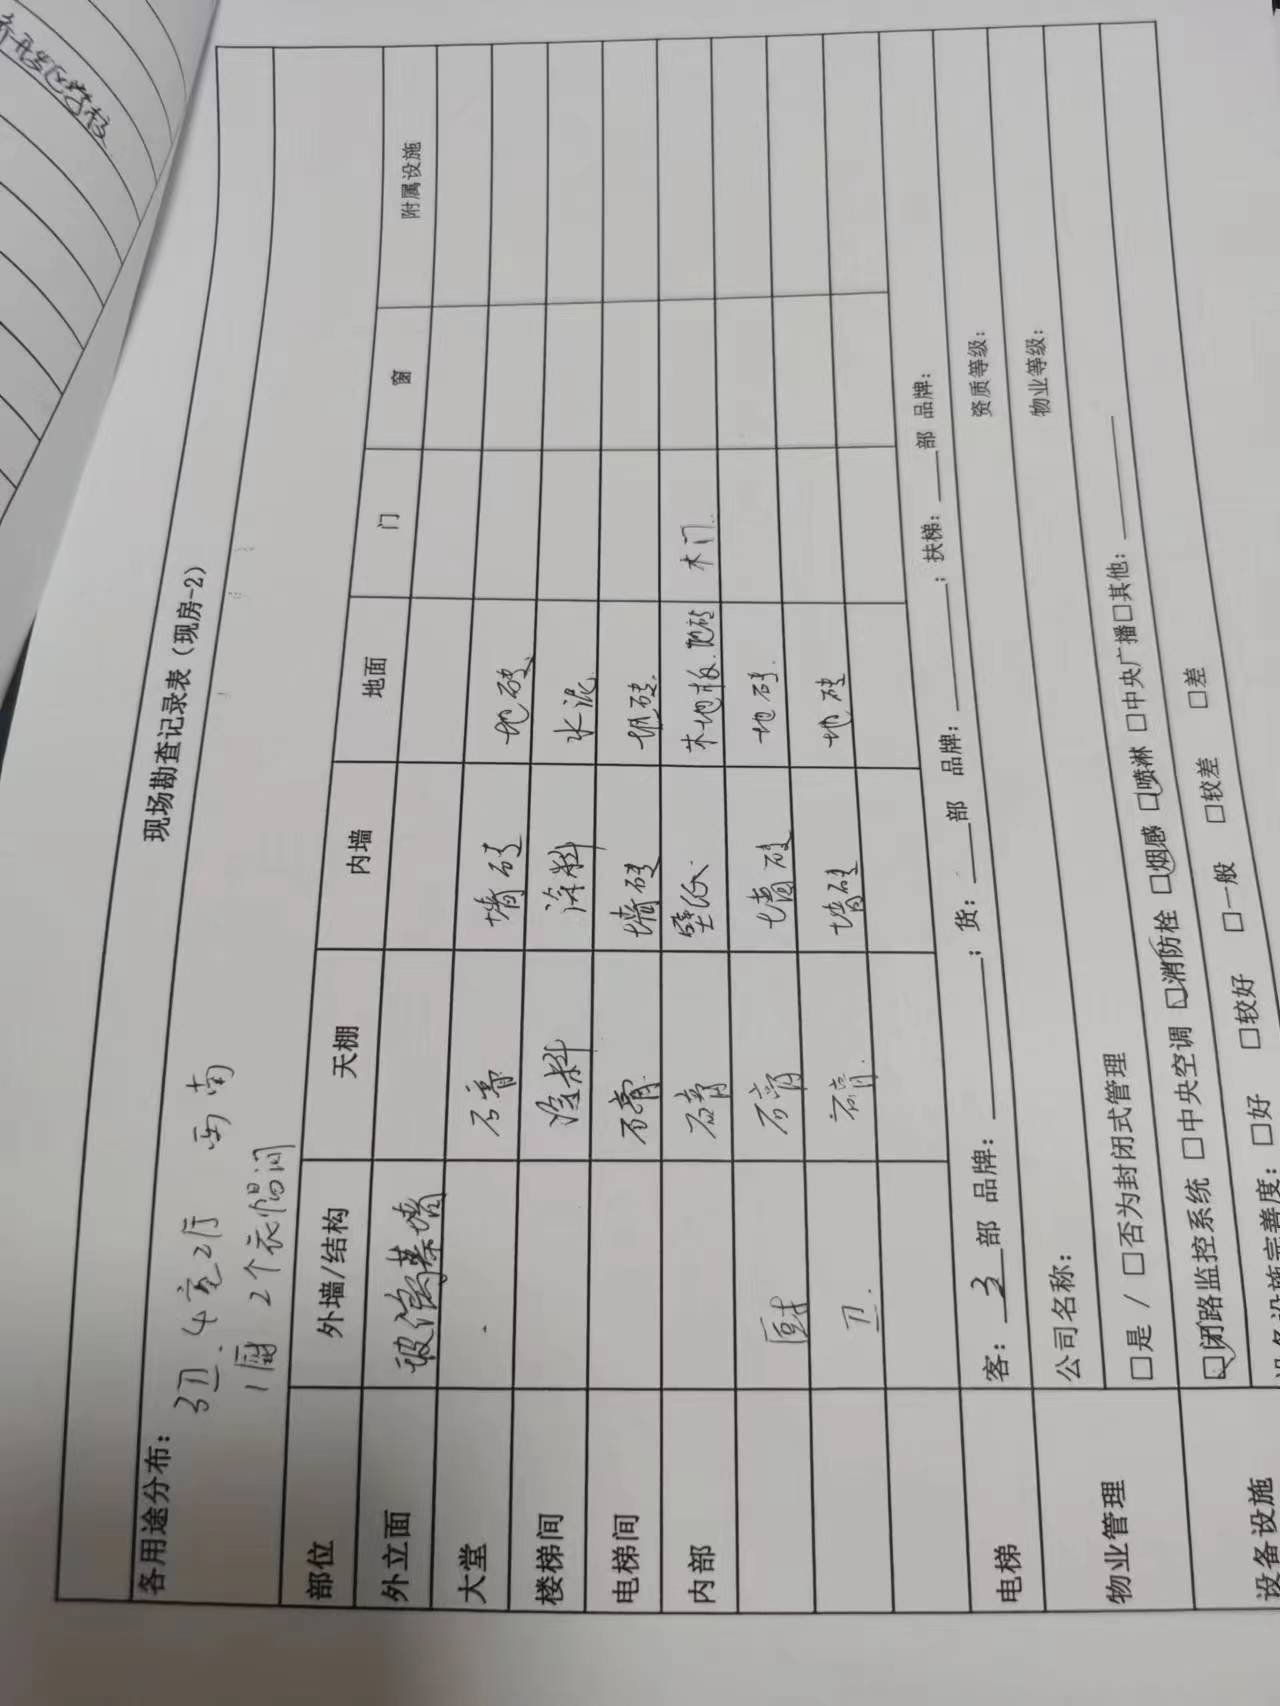 现场勘查记录表（现房-2）
各用途分布：
3卫.4室2厅 西南
1厨 2个衣帽间
部位 外墙/结构 天棚 内墙 地面 门 窗 附属设施
外立面 玻璃幕墙
大堂 石膏 墙砖 地砖
楼梯间 涂料 涂料 水泥
电梯间 石膏 墙砖 地砖
内部 石膏 壁纸 木地板.地砖 木门
厨 石膏 墙砖 地砖
卫 石膏 墙砖 地砖
电梯 客：3部 品牌：；货：部 品牌：；扶梯：部 品牌：
物业管理 公司名称： 资质等级：
□是/□否为封闭式管理 物业等级：
设备设施 □闭路监控系统 □中央空调 □消防栓 □烟感 □喷淋 □中央广播□其他：
设备设施完善度：□好 □较好 □一般 □较差 □差